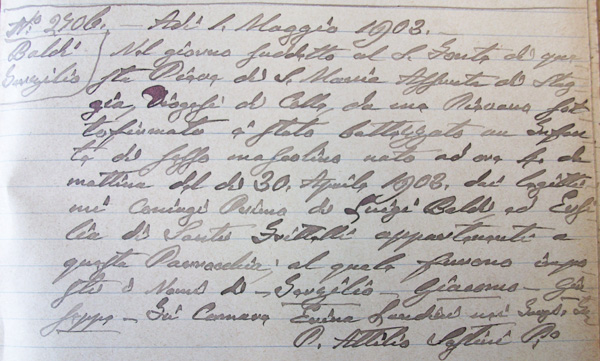 No. 2706. - Adì 1. Maggio 1903. -
Baldi Nel giorno suddetto al S. Fonte di que
Servilio sta Pieve di S. Maria Assunta di Stag
gia, Diogesi di Colle, da me Pievano sot
tofirmato è stato battezzato un Infan
te di sesso mascolino nato ad ore 4. da
mattina del dì 30. Aprile 1903. dai legitti
mi Coniugi Primo di Luigi Baldi ed Ersi
lia di Santi appartenenti a
questa Parrocchia; al quale furono impo
sti i Nomi di - Servilio - Giacomo - Giu
seppe -
P. Attilio P.o